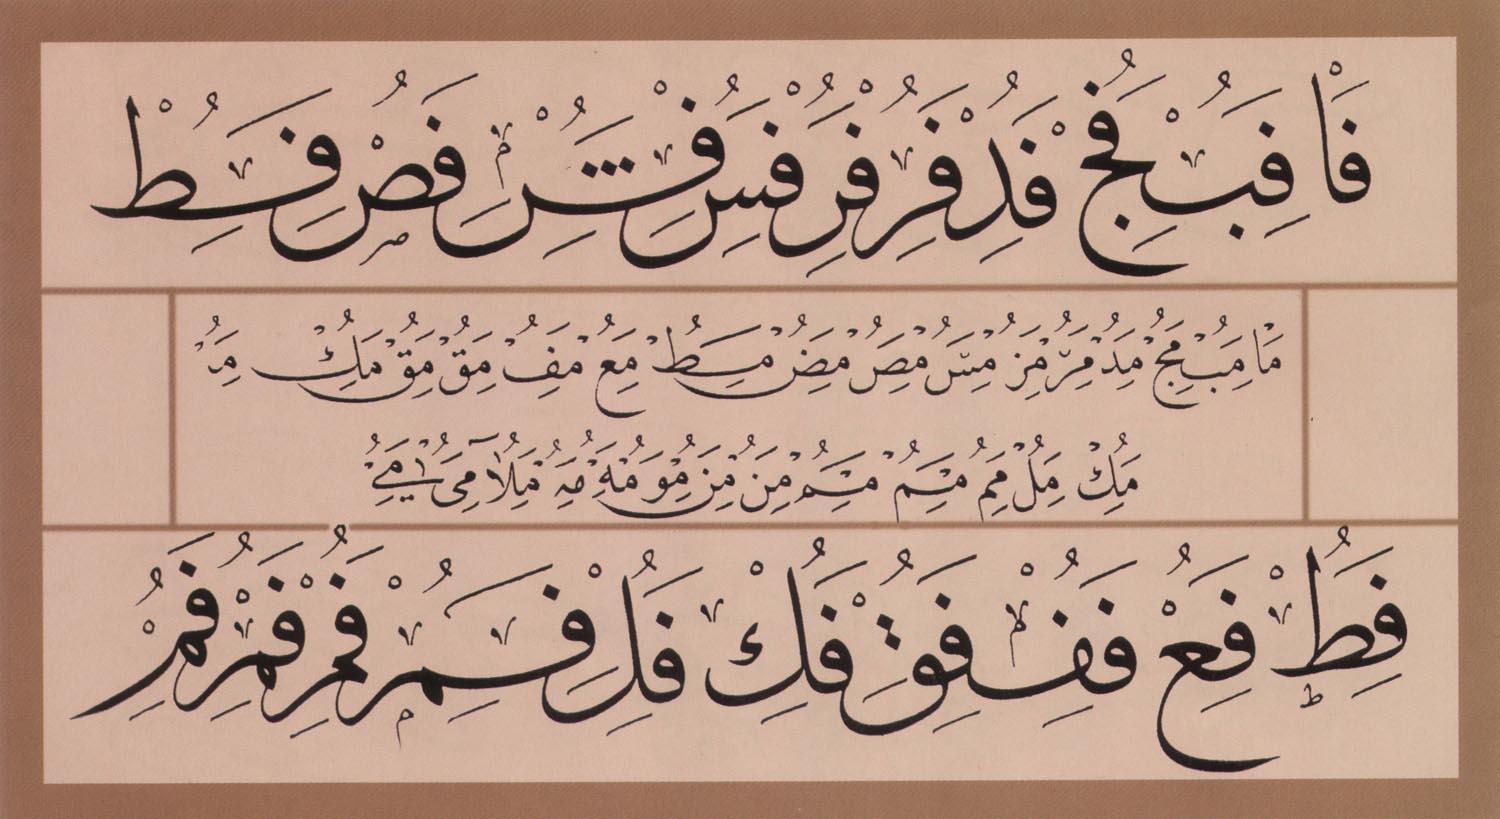 فا فب فج فد فر فر فس فش فص فط
ما مب مج مد مر مز مس مس مص مض مط مع مف مق مق مك
مك مل مم مم مم من من مو مه مه ملا مى مے
فط فع فف فق فك فل فم فم فم فم